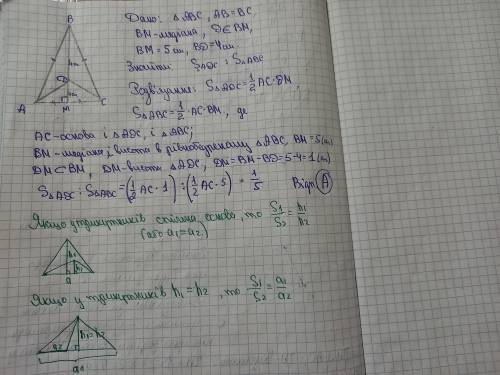 B
Дано: △ABC, AB=BC,
BM-медіана, D∈BM,
BM=5см, BD=4см.
Знайти: S△ADC : S△ABC
Розв'язання: S△ADC = 1/2 AC·DM,
S△ABC = 1/2 AC·BM, де
4см
D
1см
A
M
C
AC-основа і △ADC, і △ABC;
BM-медіана і висота в рівнобедреному △ABC, BM=5(см)
DM⊂BM, DM-висота △ADC, DM=BM-BD=5-4=1(см)
S△ADC : S△ABC = (1/2 AC·1) : (1/2 AC·5) = 1/5
Відп. А
Якщо у трикутників спільна основа, то S1/S2 = h1/h2
(або a1=a2)
h1
h2
a
Якщо у трикутників h1=h2, то S1/S2 = a1/a2
h1=h2
a2
a1